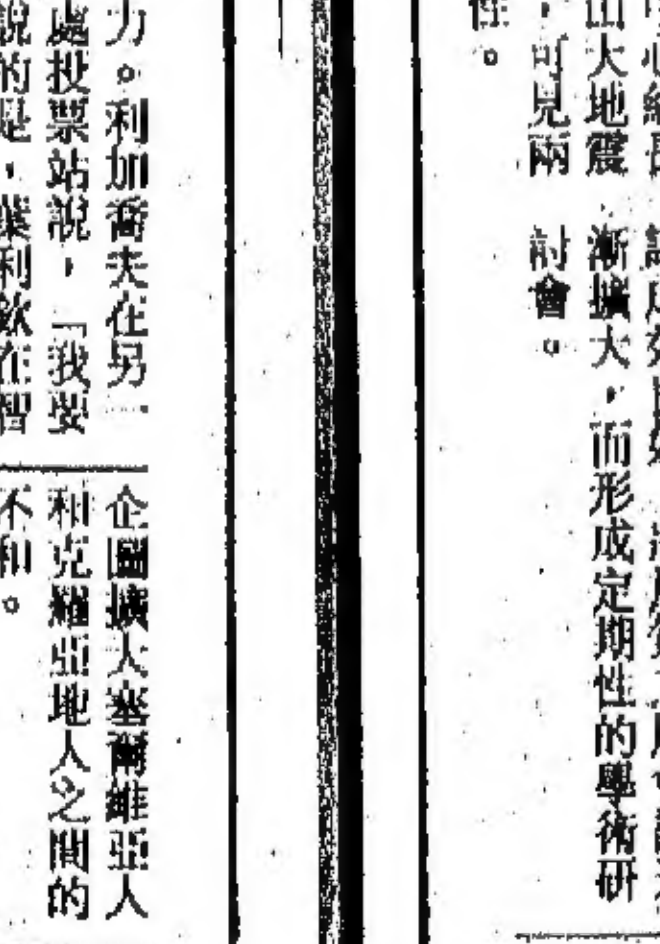 性。
，可見兩
討會。
山大地震
漸擴大，而形成定期性的學術研
力。利加喬夫在另一
處投票站說，「我要
說的是，葉利欽在智
企圖擴大塞爾維亞人
和克羅亞地人之間的
不和。